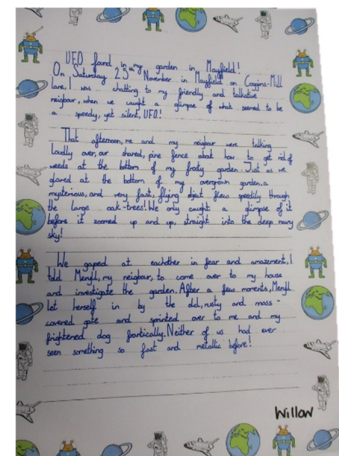 UFO found in my garden in Mayfield!
On Saturday 25 November in Mayfield on Coggins Mill
lane, I was chatting to my friendly and talkative
neigbour, when we caught a glimpse of what seemed to be
a speedy, yet silent, UFO!
That afternoon, me and my neigbour were talking
loudly over our shared, pine fence about how to get rid of
weeds at the bottom of my frosty garden. Just as we
glared at the bottom of my overgrown garden, a
mysterious, and very fast, flying object flew speedily through
the large oak trees! We only caught a glimpse of it
before it zoomed up and up, straight into the deep navy
sky!
We gaped at eachother in fear and amazement. I
told my neigbour, to come over to my house
and investigate the garden. After a few moments,
let herself in by the old, rusty and moss-
covered gate and sprinted over to me and my
frightened dog frantically. Neither of us had ever
seen something so fast and metallic before!
Willow